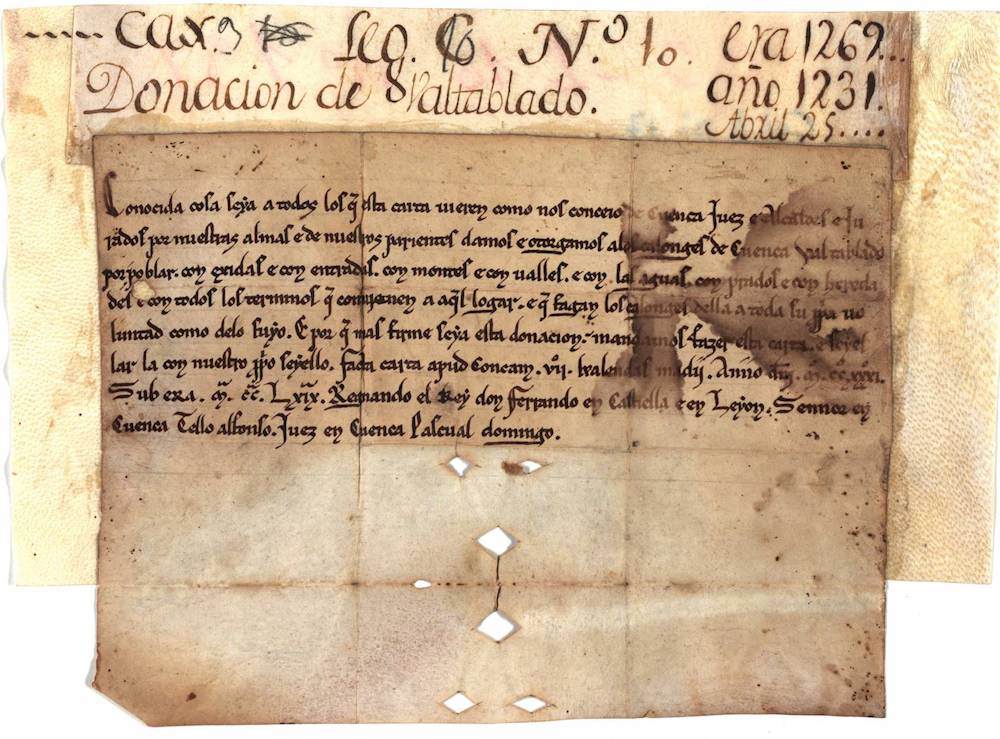 Cax.9 Leg. 6. N.º 10. era 1269...
Donacion de Valtablado. año 1231.
Abril 25....
Conocida cosa seya a todos los q̃ esta carta vieren como nos conceio de Cuenca Juez e Alcaldes e Ju
rados por nuestras almas e de nuestros parientes damos e otorgamos alos calonges de Cuenca Valtablado
por poblar. con exidas e con entradas. con montes e con valles. e con las aguas. con prados e con hereda
des e con todos los terminos q̃ a aq̃l logar. e q̃ fagan los calonges della a toda su vo
luntad como delo suyo. E por q̃ mas firme seya esta donacion. mandamos fazer esta carta. e seyel
lar la con nuestro seyello. facta carta apud Concam. vij. kalendas madij. Anno M. CC. xxxi.
Sub era. M. CC. Lxix. Regnando el Rey don Ferrando en Castiella e en Leyon. Sennor en
Cuenca Tello alfonso. Juez en Cuenca Pascual domingo.